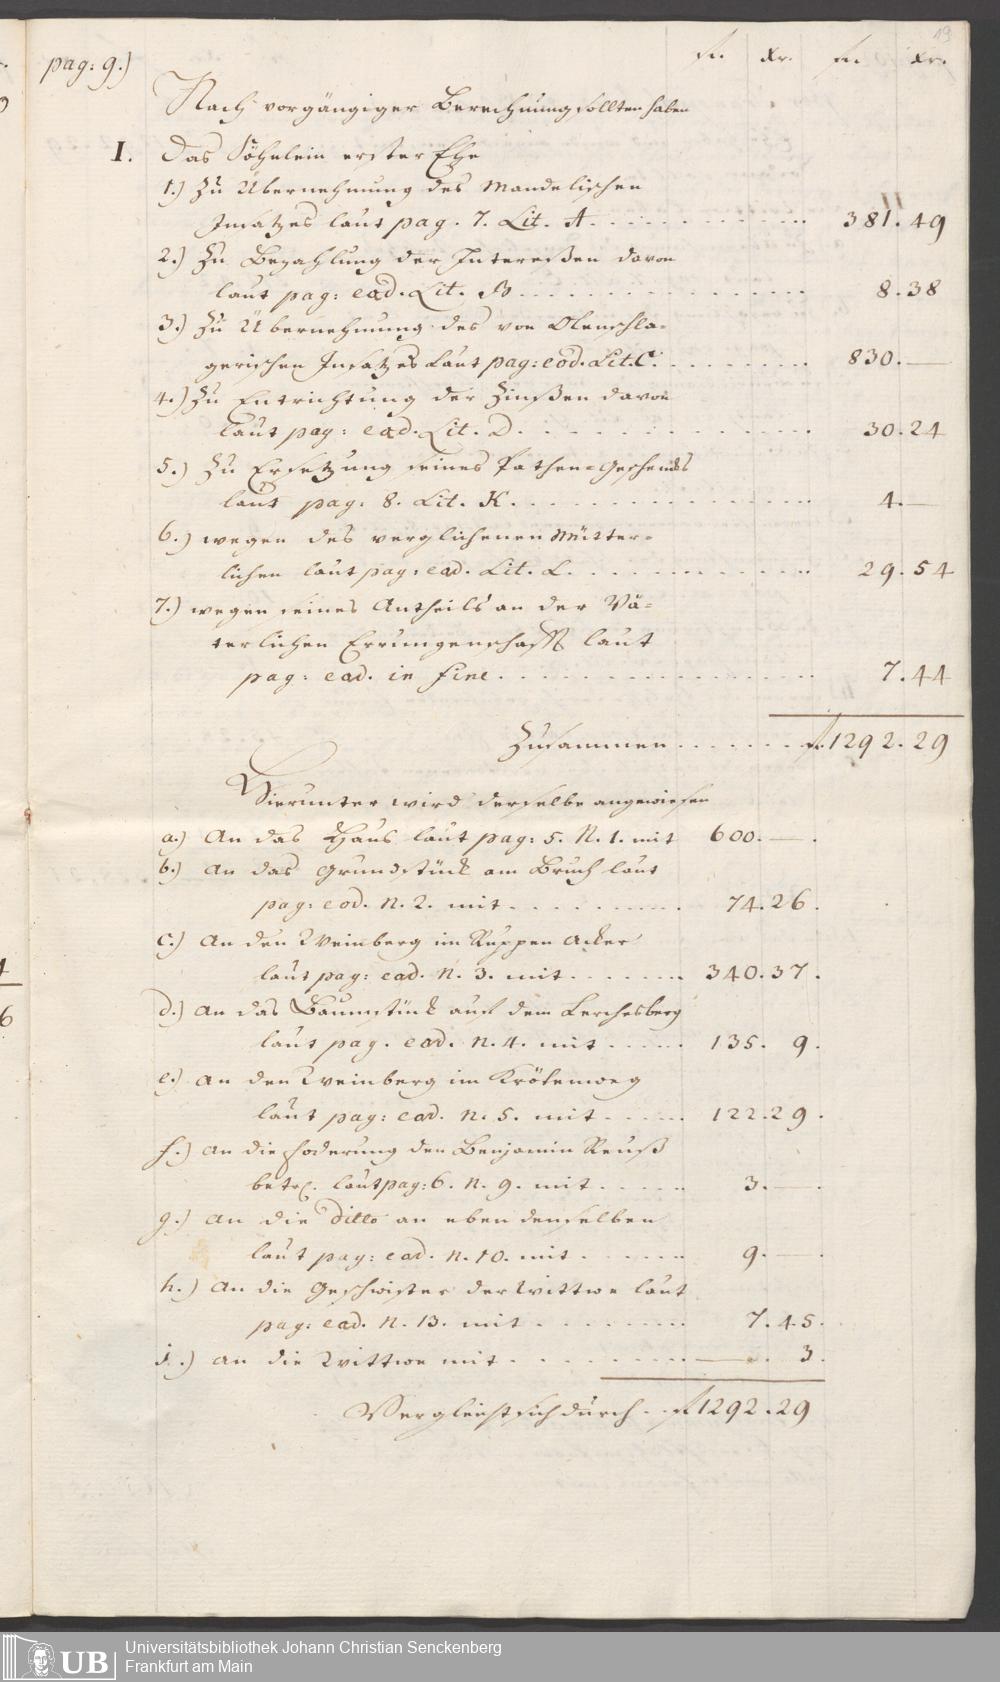 19
pag: 9.)
fl. xr. fl. xr.
Nach vorgängiger Berechnung sollten haben
I. Das Söhnlein erster Ehe
1.) Zu Übernehmung des Mandelischen
Insatzes laut pag. 7. Lit. A. 381. 49
2.) Zu Bezahlung der Intereßen davon
laut pag: ead. Lit. B 8. 38
3.) Zu Übernehmung des von Olenschla-
gerischen Insatzes laut pag: eod. Lit. C. 830. —
4.) Zu Entrichtung der Zinßen davon
laut pag: ead. Lit. D. 30. 24
5.) Zu Ersetzung seines Pathen-Geschencks
laut pag: 8. Lit. K. 4. —
6.) wegen des verglichenen Mütter-
lichen laut pag: ead. Lit. L. 29. 54
7.) wegen seines Antheils an der Vä-
terlichen Errungenschafft laut
pag: ead. in fine 7. 44
Zusammen fl. 1292. 29
Hierunter wird derselbe angewiesen
a.) An das Haus laut pag: 5. N. 1. mit 600. —.
b.) An das Grundstück am Bruch laut
pag: eod. N. 2. mit 74. 26.
c.) An den Weinberg im Ruppen Acker
laut pag: ead. N. 3. mit 340. 37.
d.) An das Baumstück auf dem Lerchesberg
laut pag. ead. N. 4. mit 135. 9.
e.) An den Weinberg im Krötenweg
laut pag: ead. N. 5. mit 122. 29.
f.) An die Foderung den Benjamin Reuß
betr. laut pag: 6. N. 9. mit 3. —.
g.) An die ditto an eben denselben
laut pag: ead. N. 10. mit 9. —.
h.) An die Geschwister der Wittwe laut
pag: ead. N. 13. mit 7. 45.
i.) An die Wittwe mit —. 3.
Vergleicht sich durch fl 1292. 29
UB
Universitätsbibliothek Johann Christian Senckenberg
Frankfurt am Main